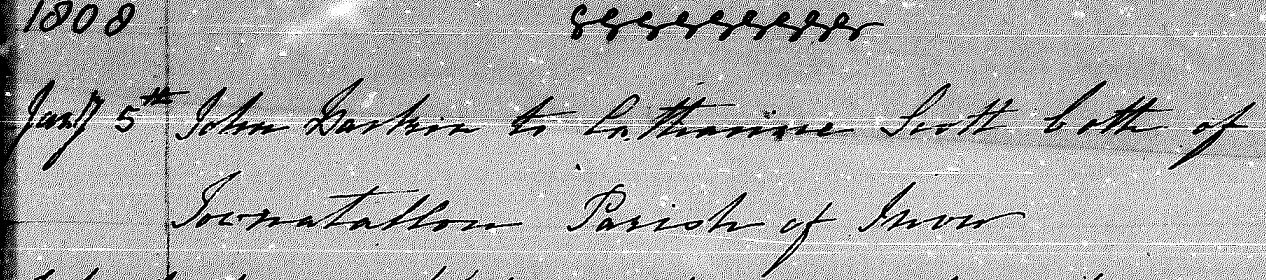 1808
Jany 5th John Daskin to Catharine Scott both of
Townatallon Parish of Inver